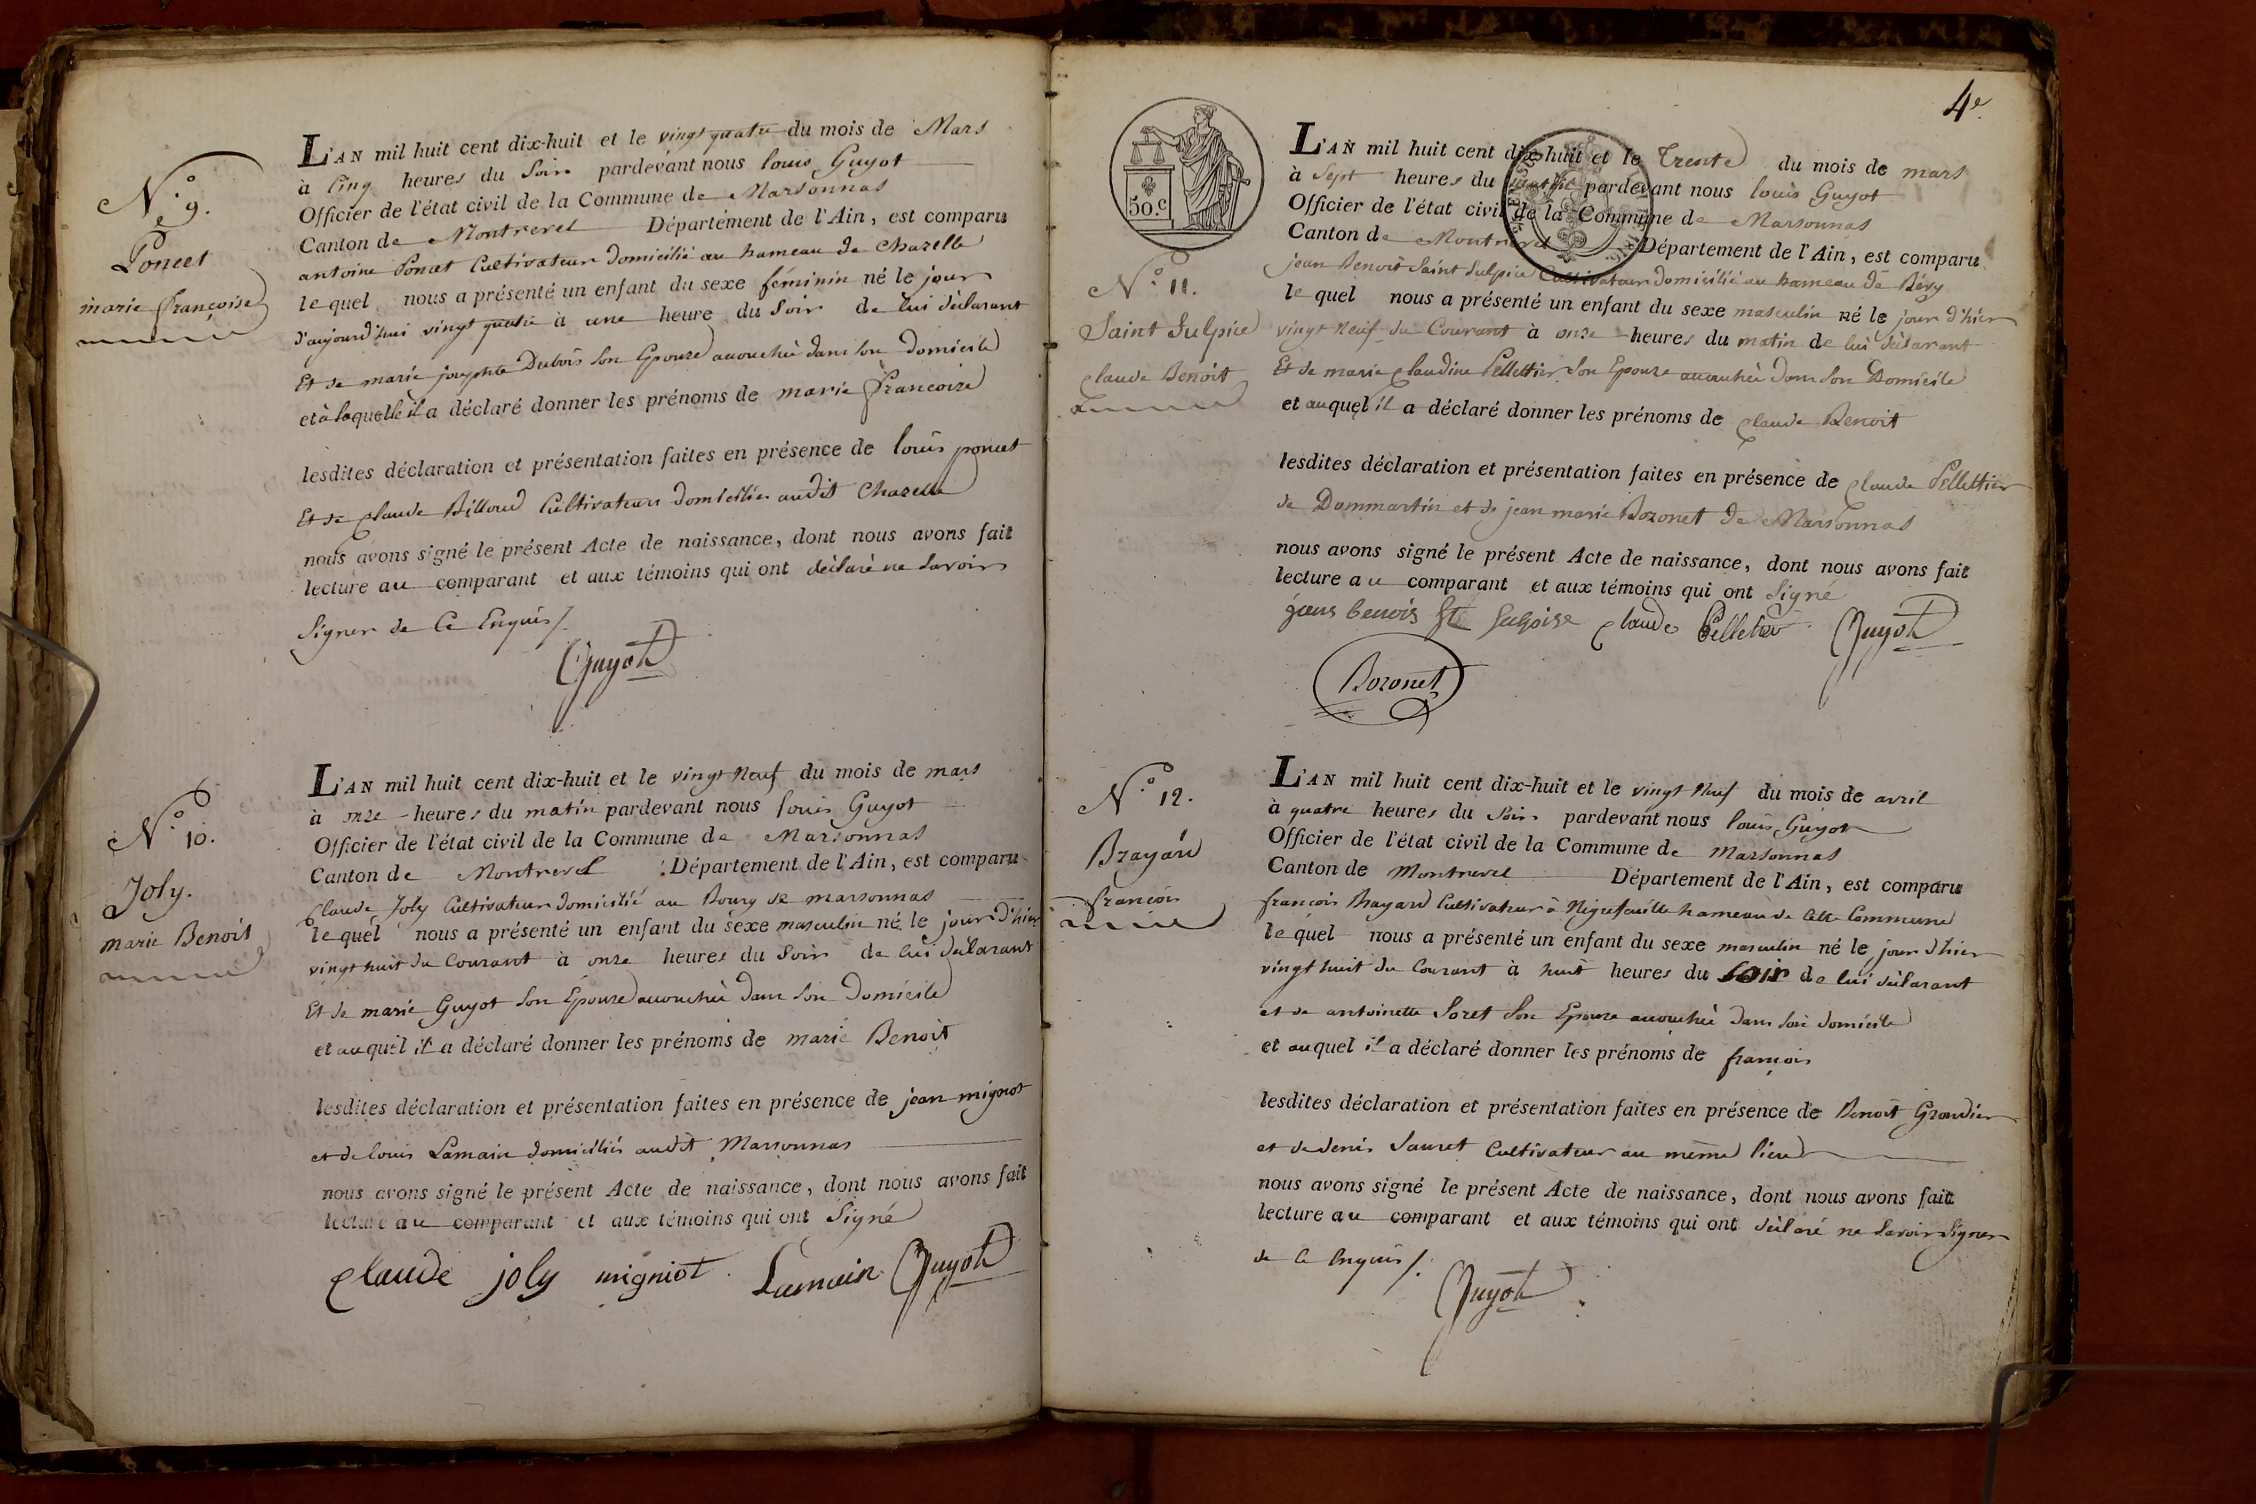 N.º 9.
Poncet
marie françoise
L'AN mil huit cent dix-huit et le vingt quatre du mois de Mars
à Cinq heures du Soir pardevant nous louis Guyot
Officier de l'état civil de la Commune de Marsonnas
Canton de Montrevel Département de l'Ain, est comparu
antoine Poncet Cultivateur domicilié au hameau de Chazelle
lequel nous a présenté un enfant du sexe féminin né le jour
d'aujourd'hui vingt quatre à une heure du Soir de lui déclarant
Et de marie josephte Dubois son Epouse accouchée dans son domicile
et à laquelle il a déclaré donner les prénoms de marie françoise
lesdites déclaration et présentation faites en présence de louis poncet
Et de Claude Billoud Cultivateurs domiciliés audit Chazelle
nous avons signé le présent Acte de naissance, dont nous avons fait
lecture au comparant et aux témoins qui ont déclaré ne savoir
Signer de Ce Enquis /.
Guyot
N.º 10.
Joly.
marie Benoit
L'AN mil huit cent dix-huit et le vingt Neuf du mois de mars
à onze heures du matin pardevant nous louis Guyot
Officier de l'état civil de la Commune de Marsonnas
Canton de Montrevel Département de l'Ain, est comparu
Claude Joly Cultivateur domicilié au Bourg de marsonnas
lequel nous a présenté un enfant du sexe masculin né le jour d'hier
vingt huit du Courant à onze heures du Soir de lui déclarant
Et de marie Guyot son Epouse accouchée dans son domicile
et auquel il a déclaré donner les prénoms de marie Benoit
lesdites déclaration et présentation faites en présence de jean mignot
et de louis Lamain domiciliés audit Marsonnas
nous avons signé le présent Acte de naissance, dont nous avons fait
lecture au comparant et aux témoins qui ont Signé
Claude joly migniot Lamain Guyot
4e.
50.c
N.º 11.
Saint Sulpice
Claude Benoit
L'AN mil huit cent dix-huit et le Trente du mois de mars
à Sept heures du pardevant nous louis Guyot
Officier de l'état civil de la Commune de Marsonnas
Canton de Montrevel Département de l'Ain, est comparu
jean Benoit Saint Sulpice Cultivateur domicilié au hameau de Béry
lequel nous a présenté un enfant du sexe masculin né le jour d'hier
vingt Neuf du Courant à onze heures du matin de lui déclarant
Et de marie Claudine Pellettier son Epouse accouchée dans son Domicile
et auquel il a déclaré donner les prénoms de Claude Benoit
lesdites déclaration et présentation faites en présence de Claude Pellettier
de Dommartin et de jean marie Bozonet de Marsonnas
nous avons signé le présent Acte de naissance, dont nous avons fait
lecture au comparant et aux témoins qui ont Signé
Claude Guyot
Bozonet
N.º 12.
Brayard
françois
L'AN mil huit cent dix-huit et le vingt Neuf du mois de avril
à quatre heures du Soir pardevant nous louis Guyot
Officier de l'état civil de la Commune de Marsonnas
Canton de Montrevel Département de l'Ain, est comparu
françois Brayard Cultivateur à Nigrefeuille hameau de Cette Commune
lequel nous a présenté un enfant du sexe masculin né le jour d'hier
vingt huit du Courant à huit heures du soir de lui déclarant
et de antoinette Soret son Epouse accouchée dans son domicile
et auquel il a déclaré donner les prénoms de françois
lesdites déclaration et présentation faites en présence de Benoit Grandier
et de denis Sauret Cultivateur au même lieu
nous avons signé le présent Acte de naissance, dont nous avons fait
lecture au comparant et aux témoins qui ont déclaré ne savoir Signer
de Ce Enquis /.
Guyot